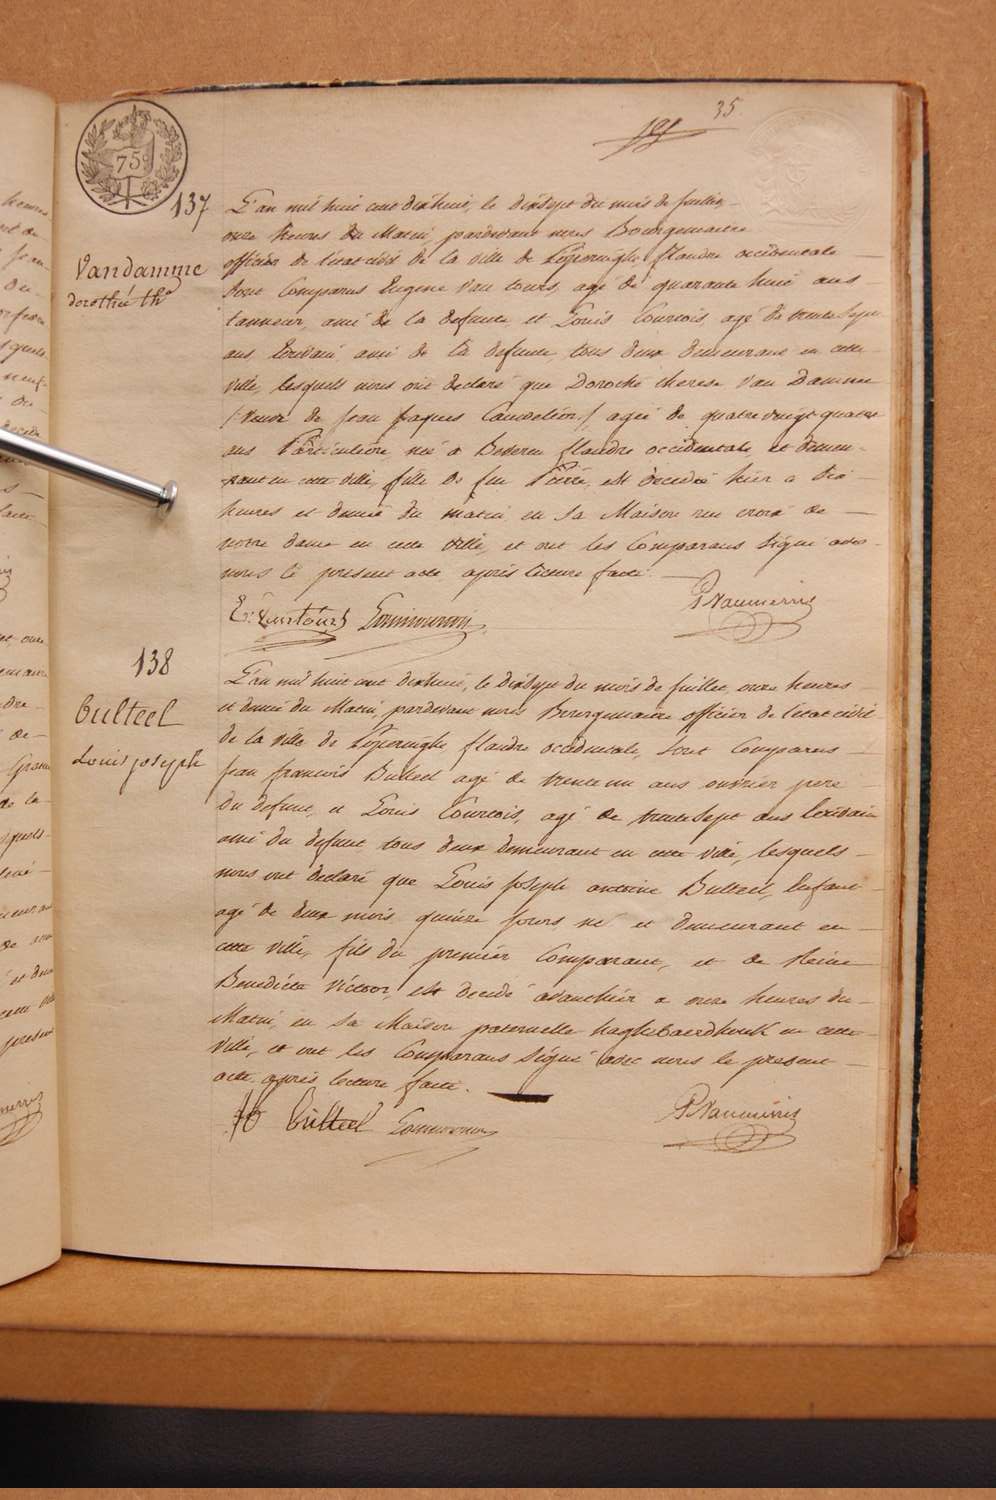 35
75
137
Vandamme
dorothé th.
L'an mil huit cent dixhuit, le dixsept du mois de juillet,
onze heures du Matin, pardevant nous Bourguemaitre
officier de l'etat civil de la ville de Poperinghe flandre occidentale
sont Comparus Eugene Van tours, agé de quarante huit ans
tanneur, ami de la defunte, et Louis Courtois, agé de trente sept
ans Ecrivain ami de la defunte, tous deux demeurans en cette
ville, lesquels nous ont declaré que Dorothé therese Van Damme
(Veuve de jean jaques Caudelier) agée de quatre vingt quatre
ans Particulière, née à Beveren flandre occidentale, et demeu-
rant en cette ville, fille de feu Pierre, est decedée hier a dix
heures et demie du matin en sa Maison rue croix de
notre dame en cette ville, et ont les Comparans signé avec
nous le present acte après lecture faite.
138
Bulteel
Louis joseph
L'an mil huit cent dixhuit, le dixsept du mois de juillet, onze heures
et demie du Matin, pardevant nous Bourguemaitre officier de l'etat civil
de la ville de Poperinghe, flandre occidentale, sont Comparus
jean francois Bulteel agé de trente un ans ouvrier pere
du defunt, et Louis Courtois, agé de trente sept ans Ecrivain
ami du defunt tous deux demeurant en cette ville, lesquels
nous ont declaré que Louis joseph antoine Bulteel, Enfant
agé de deux mois quinze jours né et demeurant en
cette ville, fils du premier Comparant, et de Reine
Benedicte Victoor, est decedé avanthier a onze heures du
Matin, en sa Maison paternelle haghebaerdhouk en cette
ville, et ont les Comparans signé avec nous le present
acte après lecture faite.
Bulteel